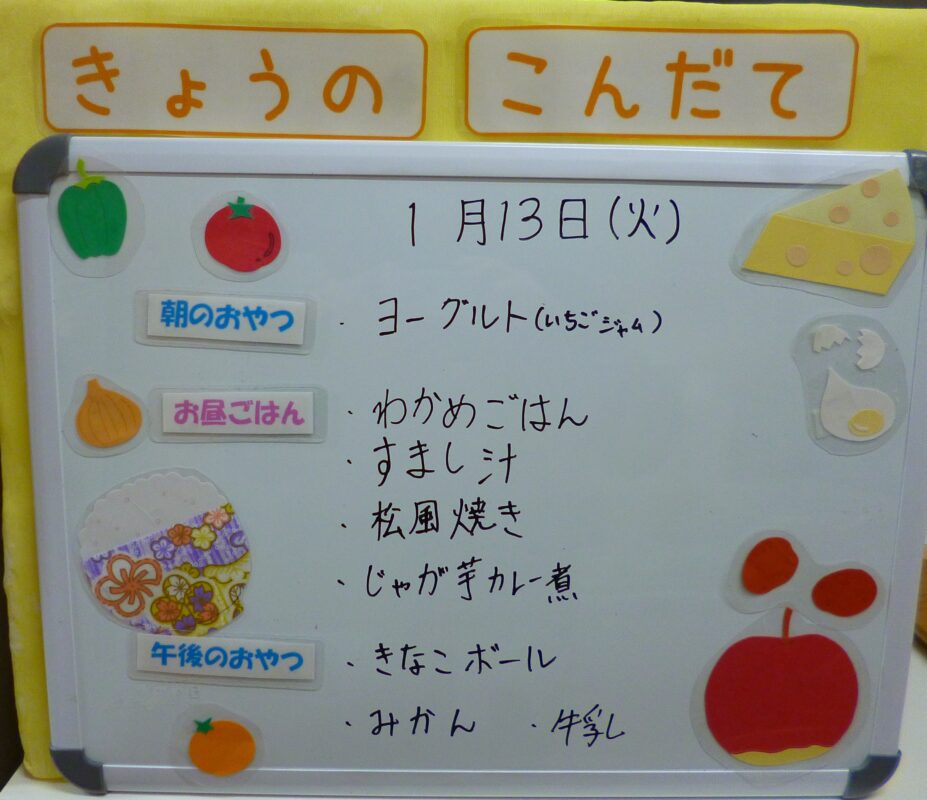 きょうの こんだて
1月13日(火)
朝のおやつ ・ヨーグルト(いちごジャム)
お昼ごはん ・わかめごはん
・すまし汁
・松風焼き
・じゃが芋カレー煮
午後のおやつ ・きなこボール
・みかん ・牛乳